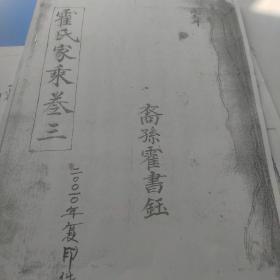 霍氏家乘叁三
裔孫霍書鈺
二〇〇〇年复印件